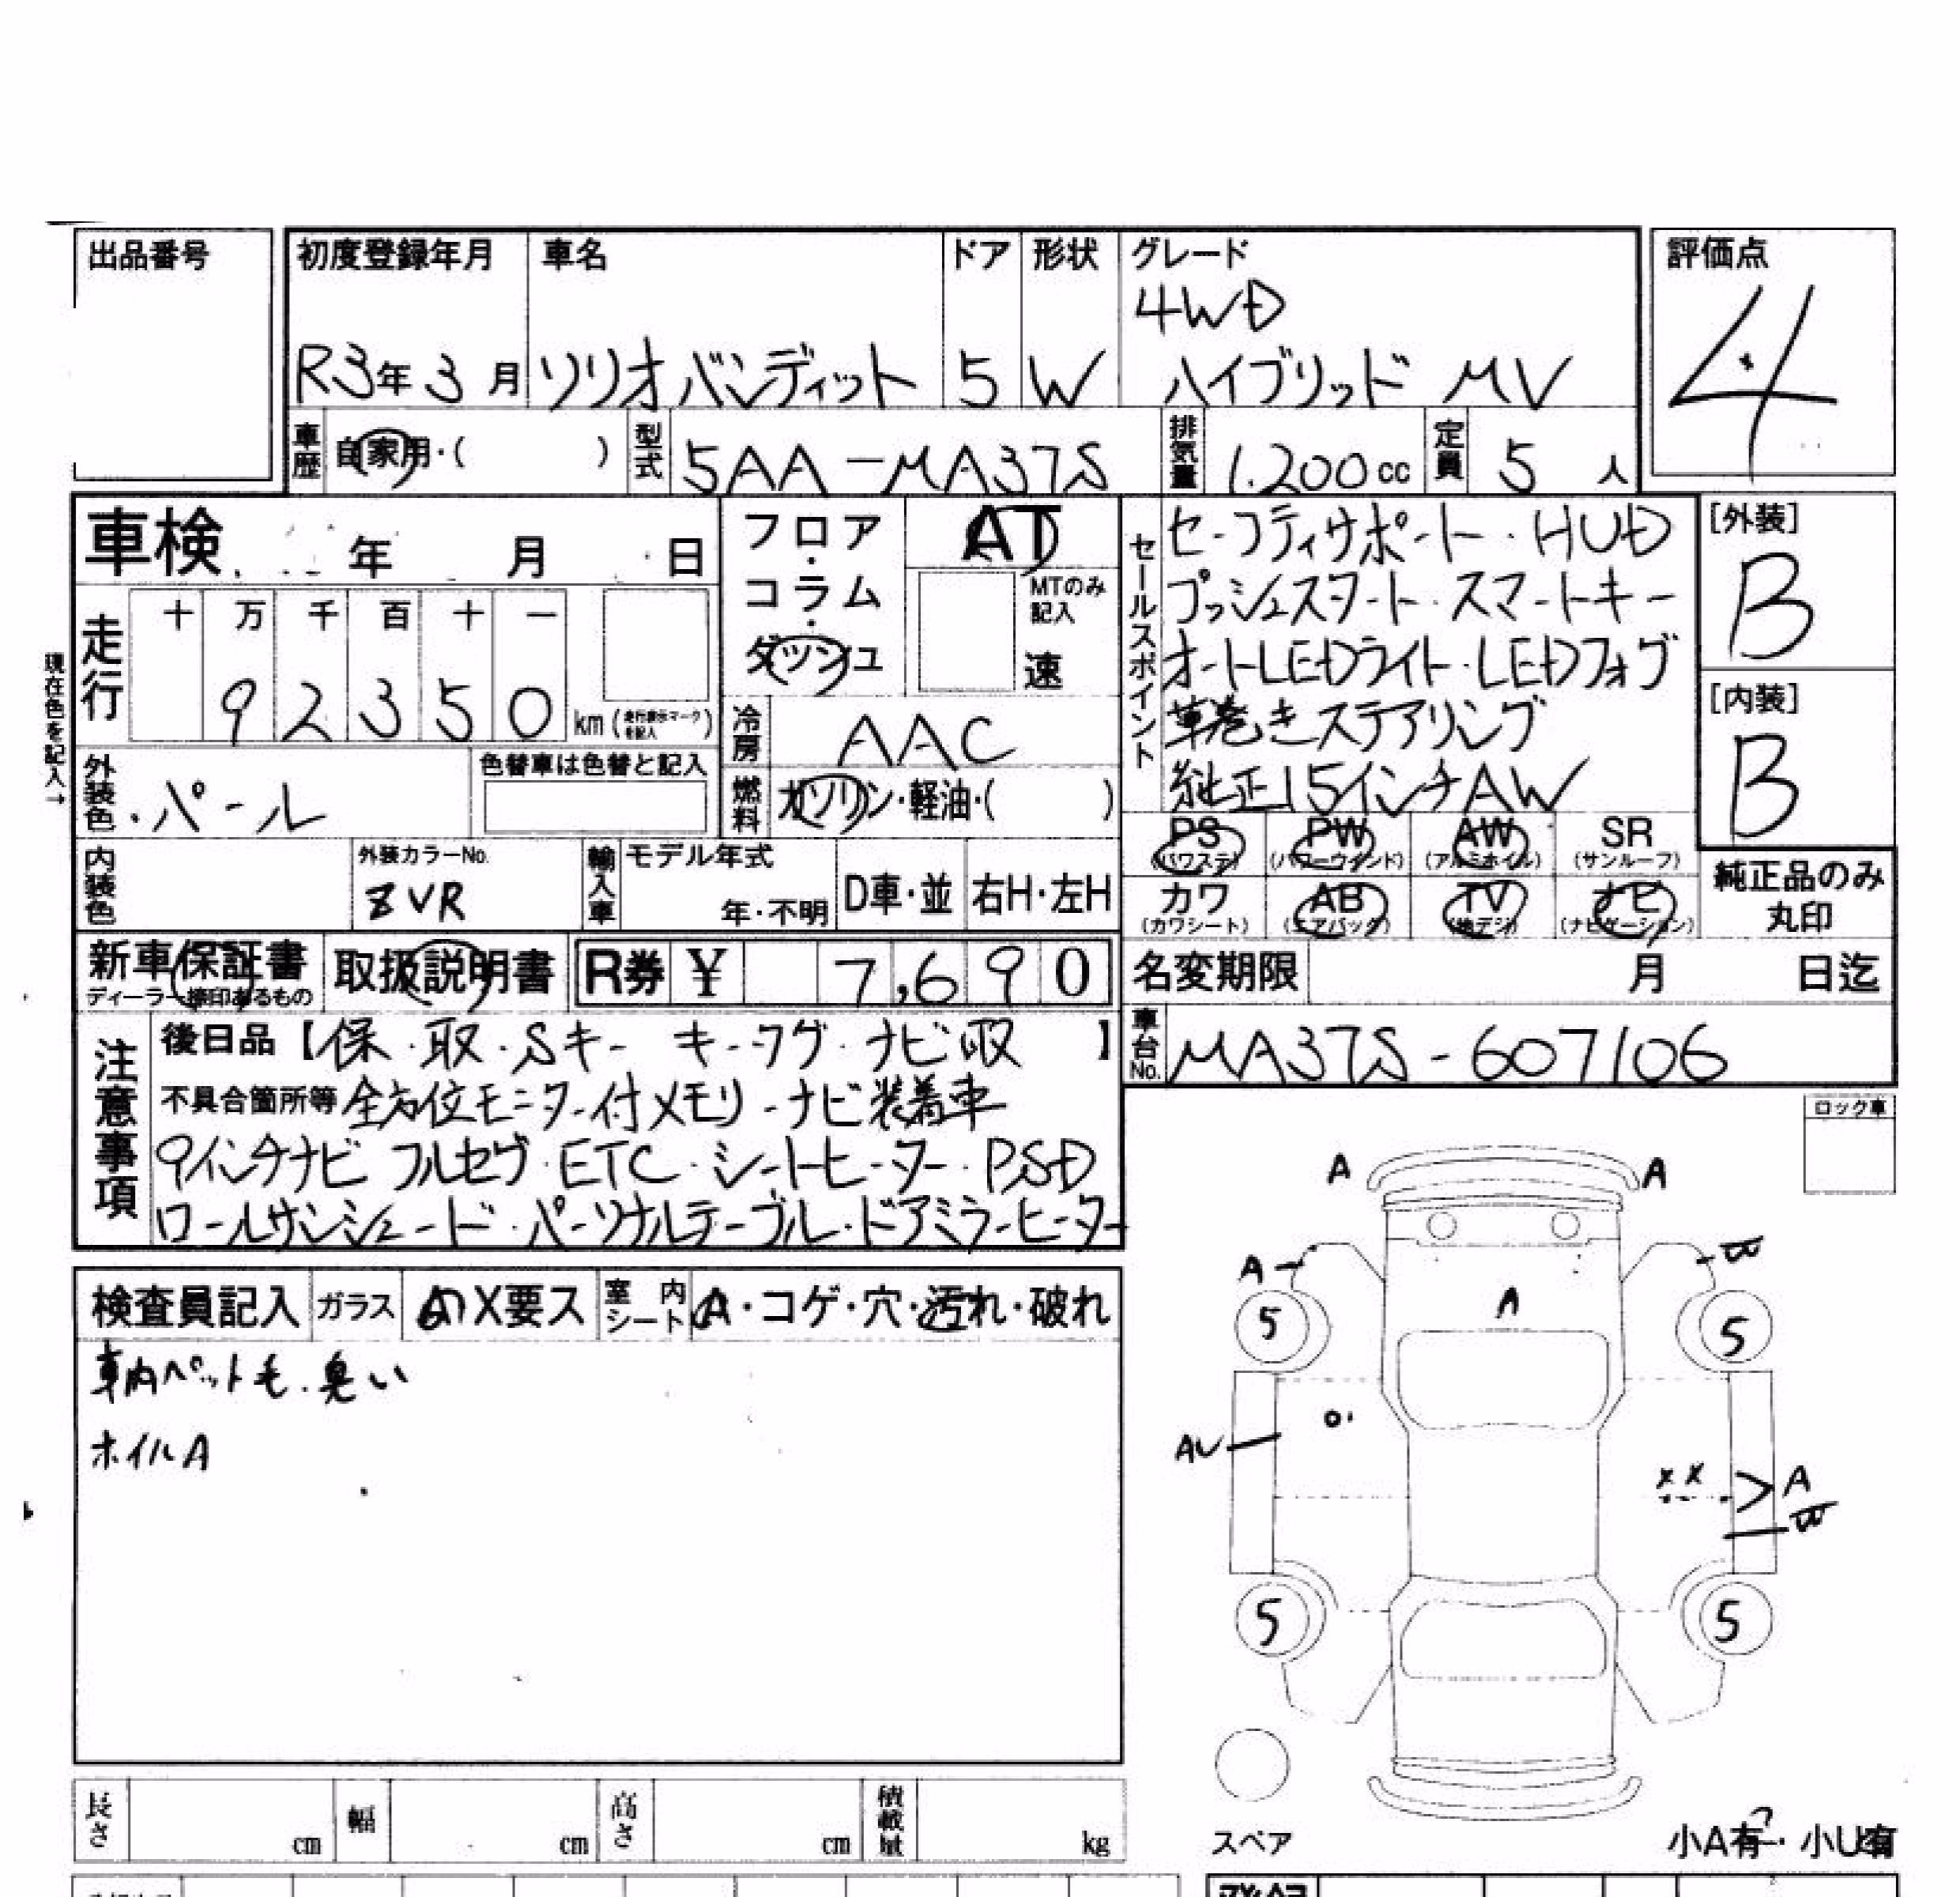 出品番号
初度登録年月 車名 ドア 形状 グレード 評価点
4WD
R3年3月 ソリオバンディット 5 W ハイブリッド MV 4
車歴 自家用・( ) 型式 5AA-MA37S 排気量 1.200cc 定員 5人
車検 年 月 日
フロア・コラム・ダッシュ
AT
MTのみ記入
速
現在色を記入→
走行
十 万 千 百 十 一
9 2 3 5 0 km (走行表示マークを記入)
冷房 AAC
外装色 パール 色替車は色替と記入
燃料 ガソリン・軽油・( )
セールスポイント
セーフティサポート・HUD
プッシュスタート・スマートキー
オートLEDライト・LEDフォグ
革巻きステアリング
純正15インチAW
[外装] B
[内装] B
PS (パワステ) PW (パワーウインド) AW (アルミホイル) SR (サンルーフ)
カワ (カワシート) AB (エアバック) TV (地デジ) ナビ (ナビゲーション)
純正品のみ丸印
内装色 外装カラーNo. ZVR 輸入車 モデル年式 年・不明 D車・並 右H・左H
新車保証書 ディーラー捺印あるもの 取扱説明書 R券 ¥ 7,690
名変期限 月 日迄
車台No. MA37S-607106
注意事項
後日品【保・取・Sキー キータグ・ナビ取】
不具合箇所等 全方位モニター付メモリーナビ装着車
9インチナビ フルセグ・ETC・シートヒーター・PSD
ロールサンシェード・パーソナルテーブル・ドアミラーヒーター
ロック車
検査員記入 ガラス X要ス 室内シート A・コゲ・穴・汚れ・破れ
車内ペット毛.臭い
ホイルA
A A
A
A
5 5
AU
x x A
5 5
スペア
小A有・小U有
長さ cm 幅 cm 高さ cm 積載量 kg